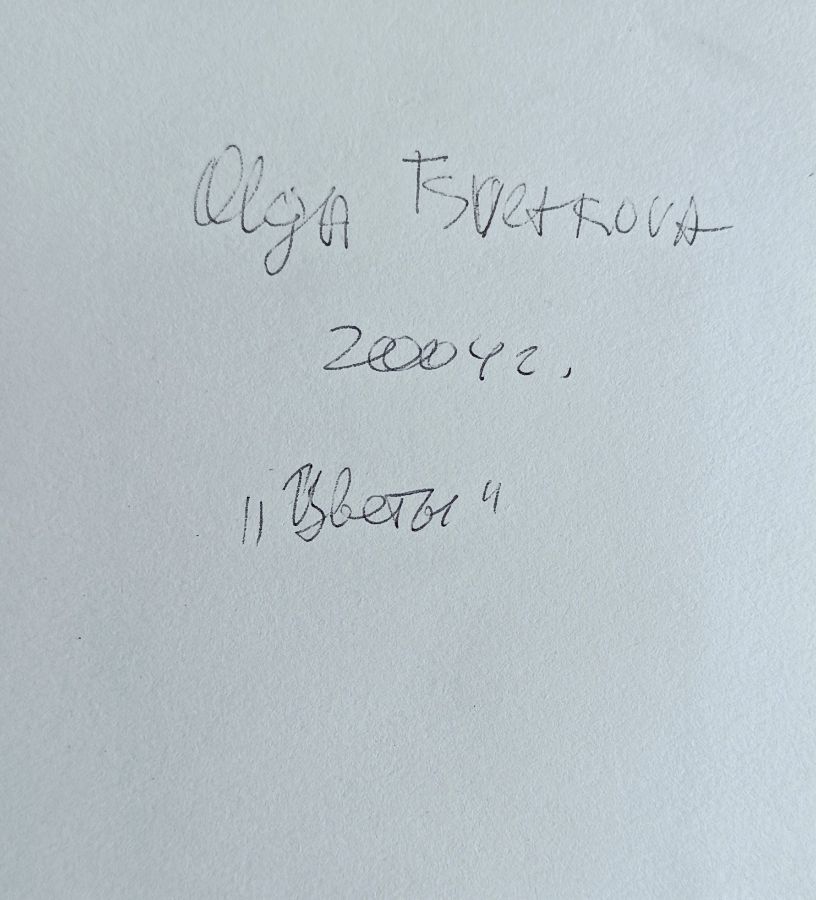 Olga Tsvetkova
2004г.
„Цветы“